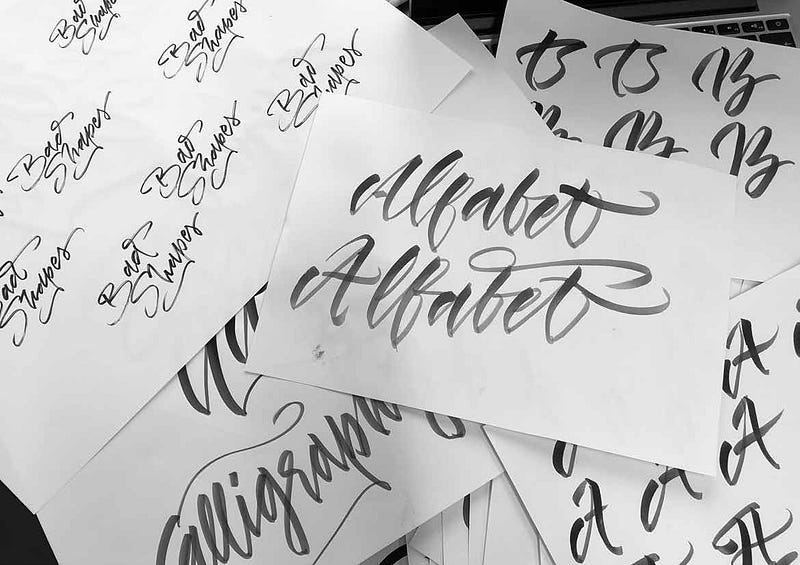 Bad
Shapes
Bad
Shapes
Bad
Shapes
Bad
Shapes
Bad
Shapes
Bad
Shapes
Bad
Shapes
Alfabet
Alfabet
B B B
B B
Calligraph
A
A
A A
A